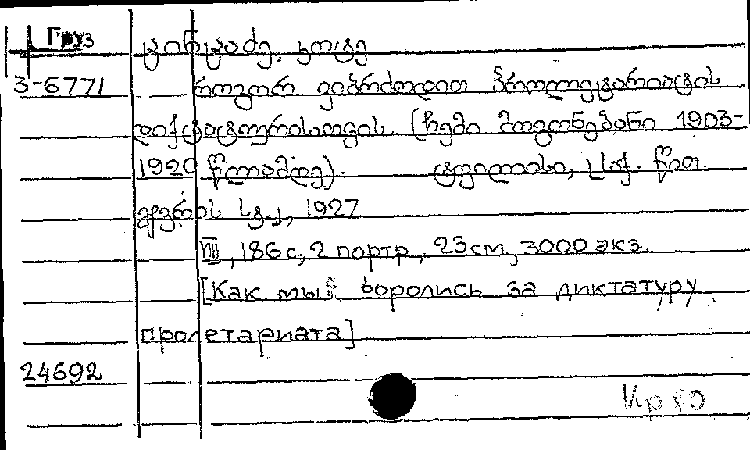 Груз
ცინცაძე, კოტე
3-6771 როგორ ვიბრძოდით პროლეტარიატის
დიქტატურისათვის. (ჩემი მოგონებანი 1903-
1920 წლამდე). ტფილისი, საქ. წით.
ჯვრის სტ., 1927
VIII, 186 с, 2 портр., 23 см, 3000 экз.
[Как мы боролись за диктатуру
пролетариата]
24692